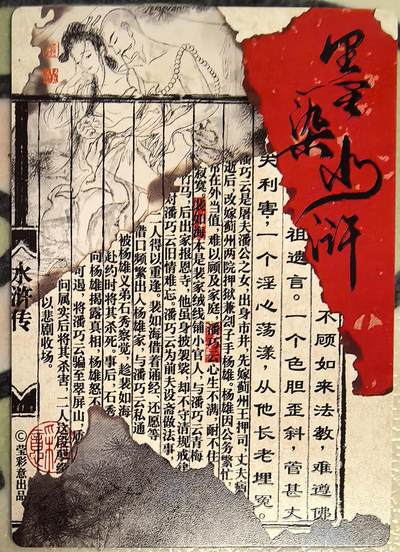 墨染水浒
不顾如来法教，难遵佛
祖遗言。一个色胆歪斜，管甚丈
夫利害，一个淫心荡漾，从他长老埋冤。
潘巧云是屠夫潘公之女，出身市井，先嫁蓟州王押司，丈夫病
逝后，改嫁蓟州两院押狱兼刽子手杨雄。杨雄因公务繁忙
常在外当值，难以顾及家庭，潘巧云心生不满，耐不住
寂寞。裴如海本是裴家绒线铺小官人，与潘巧云青梅
竹马，后出家报恩寺，他虽身披袈裟，却不守清规戒律
对潘巧云旧情难忘。潘巧云为前夫设斋做法事，
二人得以重逢。裴如海借着看厢经、还愿等
借口频繁出入杨雄家，与潘巧云私通
被杨雄义弟石秀察觉，趁裴如海
赴约时将其杀死。事后，石秀
向杨雄揭露真相，杨雄怒不
可遏，将潘巧云骗至翠屏山，质
问属实后将其杀害，二人这段孽缘
以悲剧收场。
水浒传
©莹彩意出品